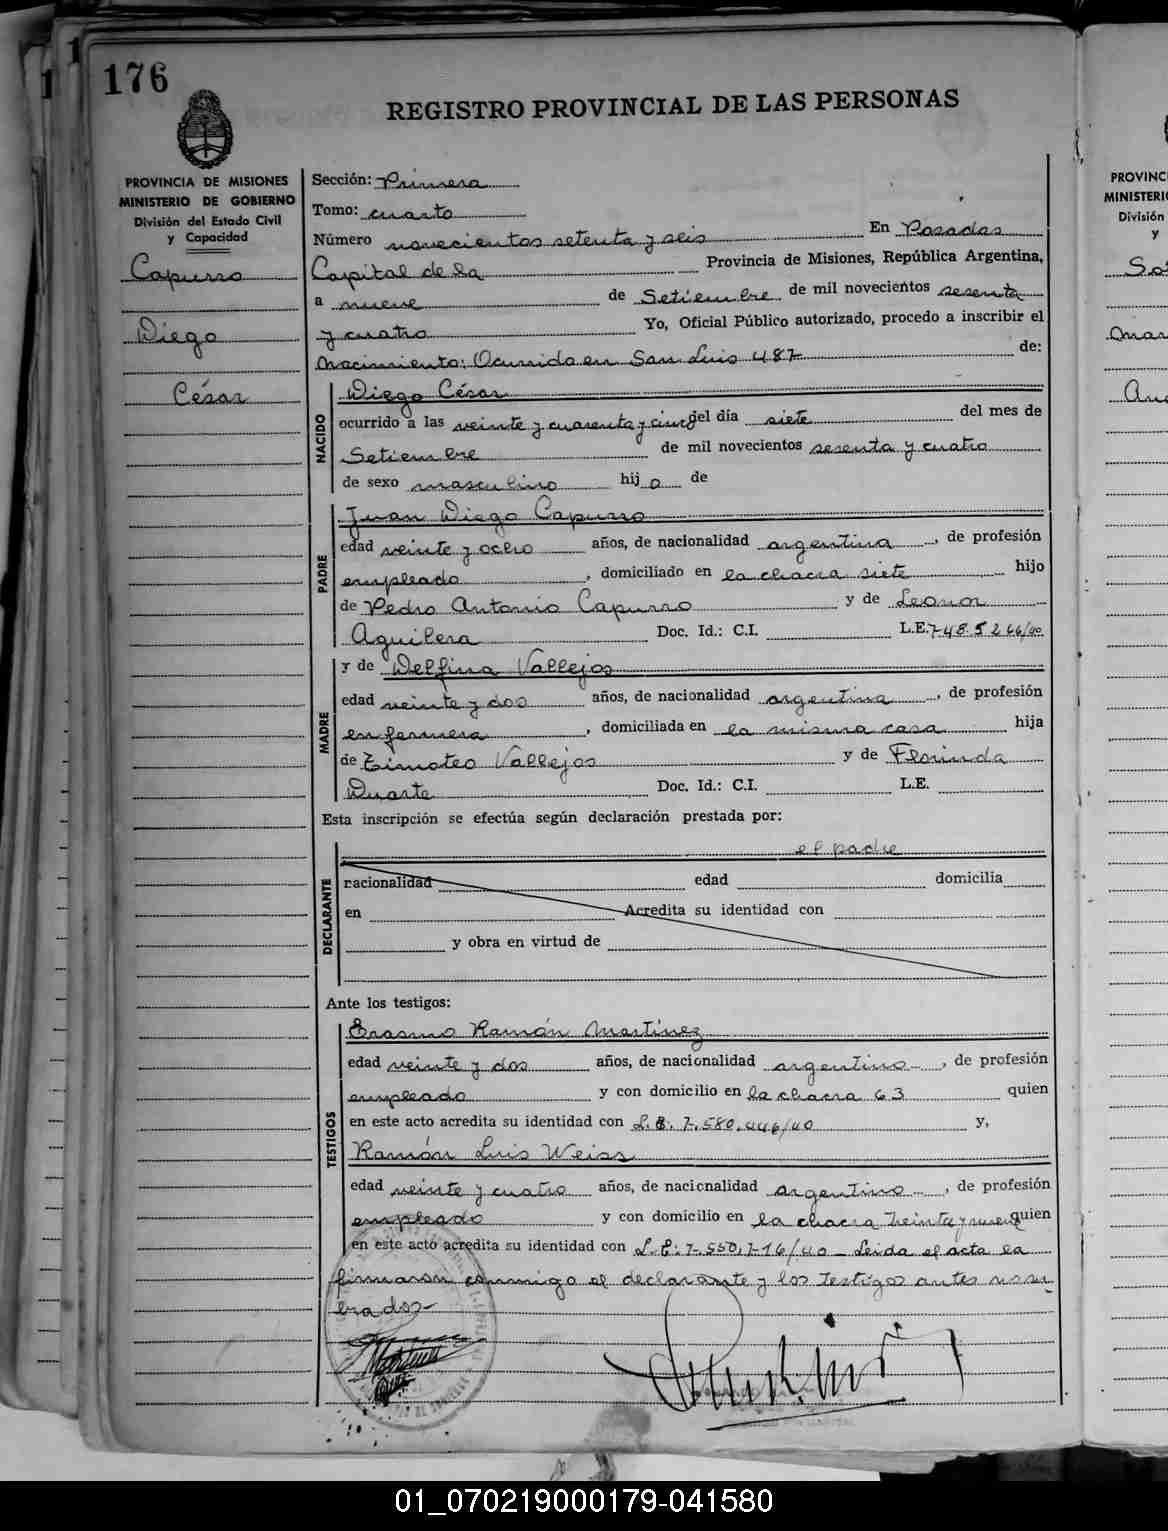 176
REGISTRO PROVINCIAL DE LAS PERSONAS
PROVINCIA DE MISIONES
MINISTERIO DE GOBIERNO
División del Estado Civil
y Capacidad
Capurro
Diego
César
Sección: Primera
Tomo: cuarto
Número novecientos setenta y seis En Posadas
Capital de la Provincia de Misiones, República Argentina,
a nueve de Setiembre de mil novecientos sesenta
y cuatro Yo, Oficial Público autorizado, procedo a inscribir el
Nacimiento: Ocurrido en San Luis 487 de:
NACIDO
Diego César
ocurrido a las veinte y cuarenta y cinco del día siete del mes de
Setiembre de mil novecientos sesenta y cuatro
de sexo masculino hijo de
PADRE
Juan Diego Capurro
edad veinte y ocho años, de nacionalidad argentina, de profesión
empleado, domiciliado en la chacra siete hijo
de Pedro Antonio Capurro y de Leonor
Aguilera Doc. Id.: C.I. L.E.
MADRE
y de Delfina Vallejos
edad veinte y dos años, de nacionalidad argentina, de profesión
enfermera, domiciliada en la misma casa hija
de Timoteo Vallejos y de Florinda
Duarte Doc. Id.: C.I. L.E.
Esta inscripción se efectúa según declaración prestada por:
DECLARANTE
el padre
racionalidad edad domicilia
en Acredita su identidad con
y obra en virtud de
Ante los testigos:
TESTIGOS
Erasmo Ramón Martínez
edad veinte y dos años, de nacionalidad argentino, de profesión
empleado y con domicilio en la chacra 63 quien
en este acto acredita su identidad con L.E. 7.580.446/40 y,
Ramón Luis Weiss
edad veinte y cuatro años, de nacionalidad argentino, de profesión
empleado y con domicilio en la chacra treinta y nueve quien
en este acto acredita su identidad con L.E: 7.550.716/40 - Leida el acta la
firmaron conmigo el declarante y los testigos antes nom
brados-
PROVINC
MINISTERI
División
y
01_070219000179-041580